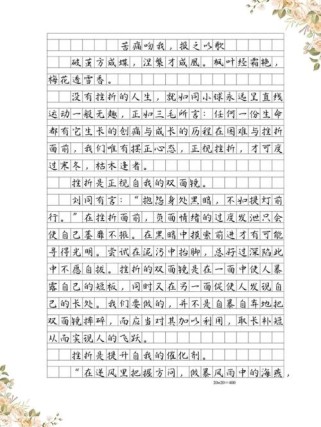 苦痛吻我，报之以歌
破茧方成蝶，涅槃才成凰。枫叶经霜艳，
梅花透雪香。
没有挫折的人生，就如同小球永远呈直线
运动一般无趣，正如三毛所言：任何一份生命
都有它生长的创痛与成长的历程在困难与挫折
面前，我们唯有摆正心态，正视挫折，才可度
过寒冬，枯木逢春。
挫折是正视自我的双面镜。
刘同有言：“抱怨身处黑暗，不如提灯前
行。”在挫折面前，负面情绪的过度发泄只会
使自己萎靡不振。在黑暗中摸索前进才有可能
寻得光明。尝试在泥污中抬脚，总好过深陷此
中不愿自拔。挫折的双面镜是在一面中使人暴
露自己的短板，同时又在另一面促使人发现自
己的长处。我们要做的，并不是自暴自弃地把
双面镜摔碎，而应当对其加以利用，取长补短
从而实现人的飞跃。
挫折是提升自我的催化剂。
“在逆风里把握方向，做暴风雨中的海燕，
20×20＝400